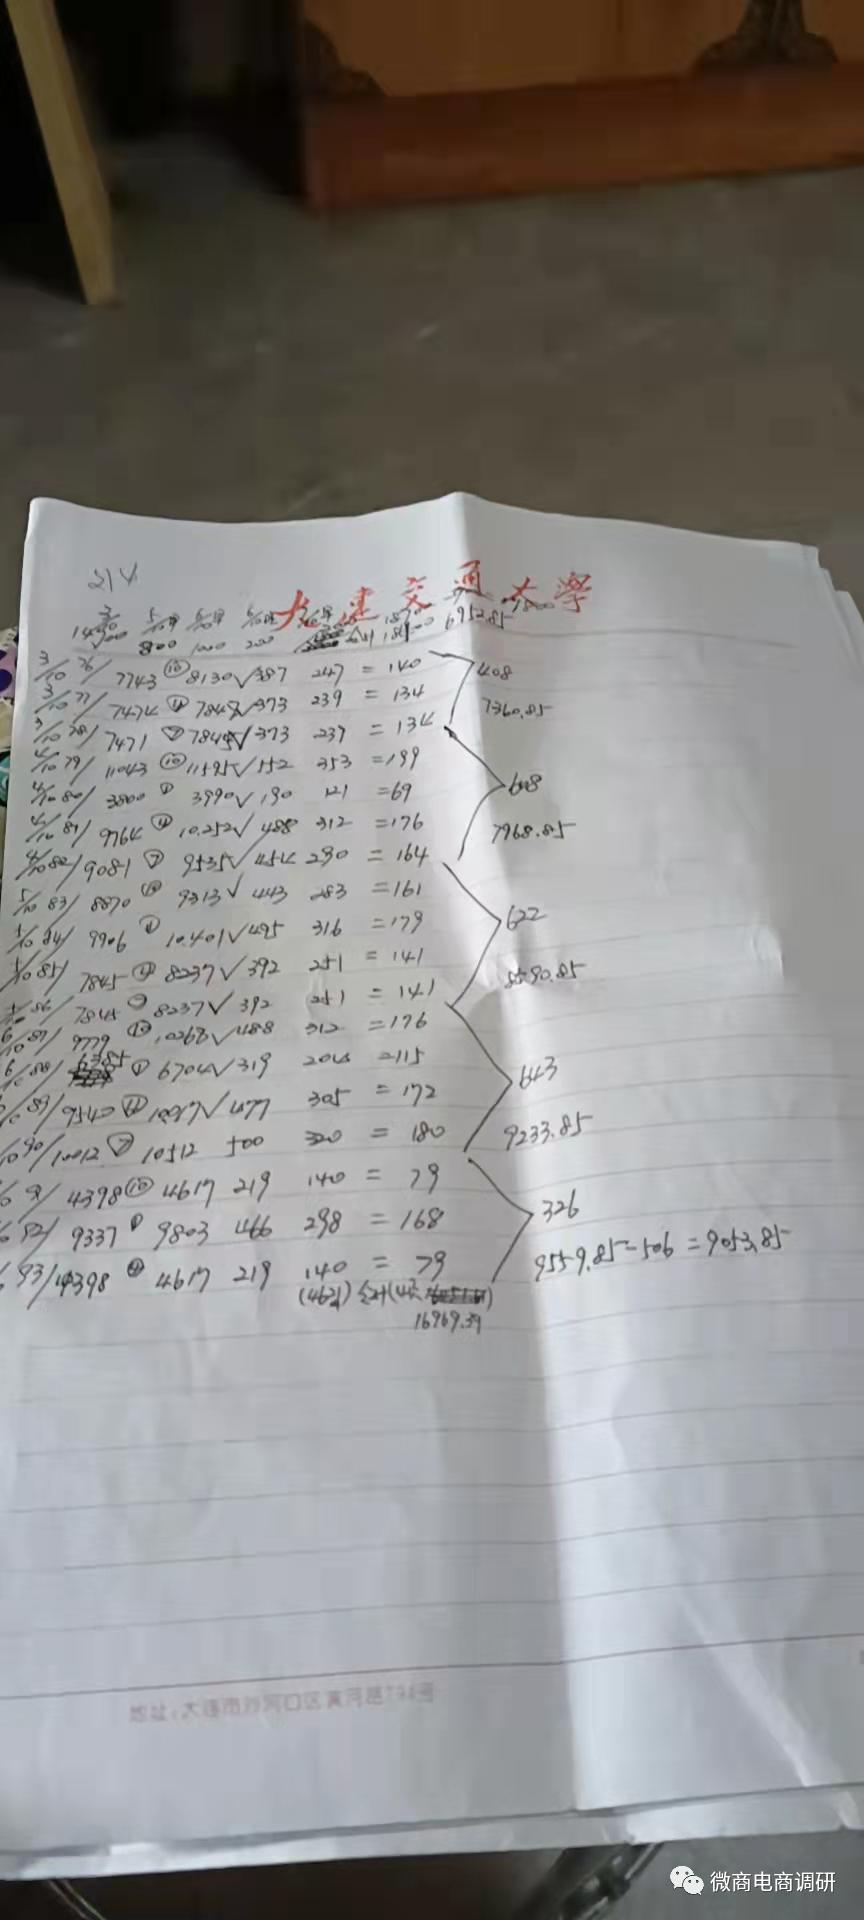 21人
大连交通大学
800 1000 200 6952.85
3/10 76/ 7743 ⑩ 8130√ 387 247 = 140
3/10 77/ 7474 7847√ 373 239 = 134 408
3/10 78/ 7471 7845√ 373 239 = 134 7360.85
4/10 79/ 11043 ⑩ 11595√ 552 353 = 199
4/10 80/ 3800 3990√ 190 121 = 69 608
4/10 81/ 9764 10.252√ 488 312 = 176 7968.85
4/10 82/ 9081 9535√ 454 290 = 164
5/10 83/ 8870 9313√ 443 283 = 161
84/ 9906 10.401√ 495 316 = 179 622
85/ 7845 8237√ 392 251 = 141 8590.85
86/ 7845 8237√ 392 251 = 141
87/ 9779 10268√ 488 312 = 176
88/ 6385 6704√ 319 204 = 115 643
89/ 9540 10017√ 477 305 = 172 9233.85
90/ 10012 10512 500 320 = 180
91/ 4398 ⑩ 4617 219 140 = 79 326
92/ 9337 9803 466 298 = 168 9559.85-506=9053.85
93/ 4398 4617 219 140 = 79
(4621)
16969.39
地址：大连市沙河口区黄河路794号
微商电商调研